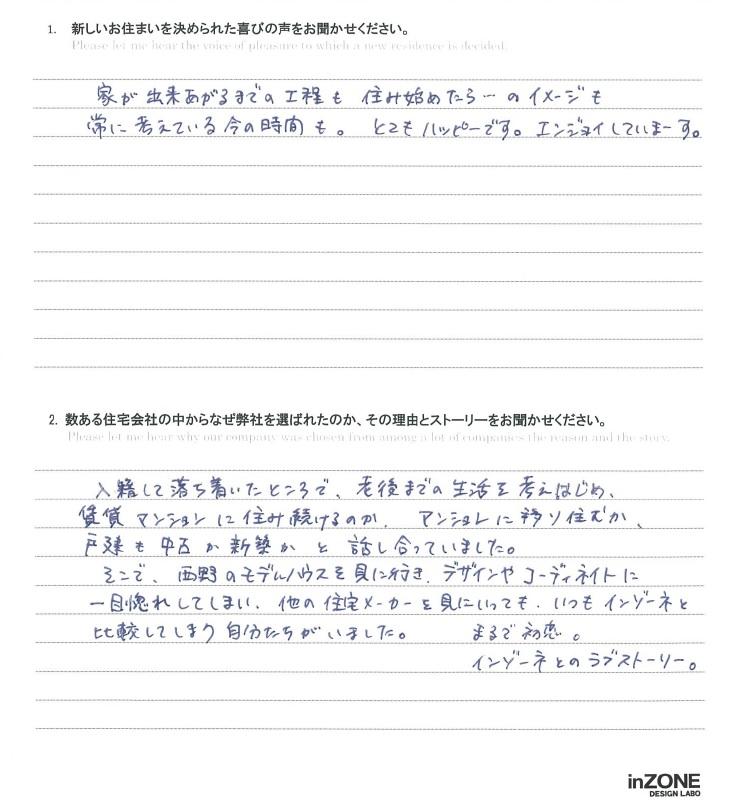 1. 新しいお住まいを決められた喜びの声をお聞かせください。
Please let me hear the voice of pleasure to which a new residence is decided.
家が出来あがるまでの工程も 住み始めたら…のイメージも
常に考えている今の時間も。 とてもハッピーです。エンジョイしていまーす。
2. 数ある住宅会社の中からなぜ弊社を選ばれたのか、その理由とストーリーをお聞かせください。
Please let me hear why our company was chosen from among a lot of companies the reason and the story.
入籍して落ち着いたところで、老後までの生活を考えはじめ、
賃貸マンションに住み続けるのか、マンションに移り住むか、
戸建も中古か新築かと話し合っていました。
そこで、西野のモデルハウスを見に行き、デザインやコーディネイトに
一目惚れしてしまい、他の住宅メーカーを見にいっても、いつもインゾーネと
比較してしまう自分たちがいました。 まるで初恋。
インゾーネとのラブストーリー。
inZONE
DESIGN LABO